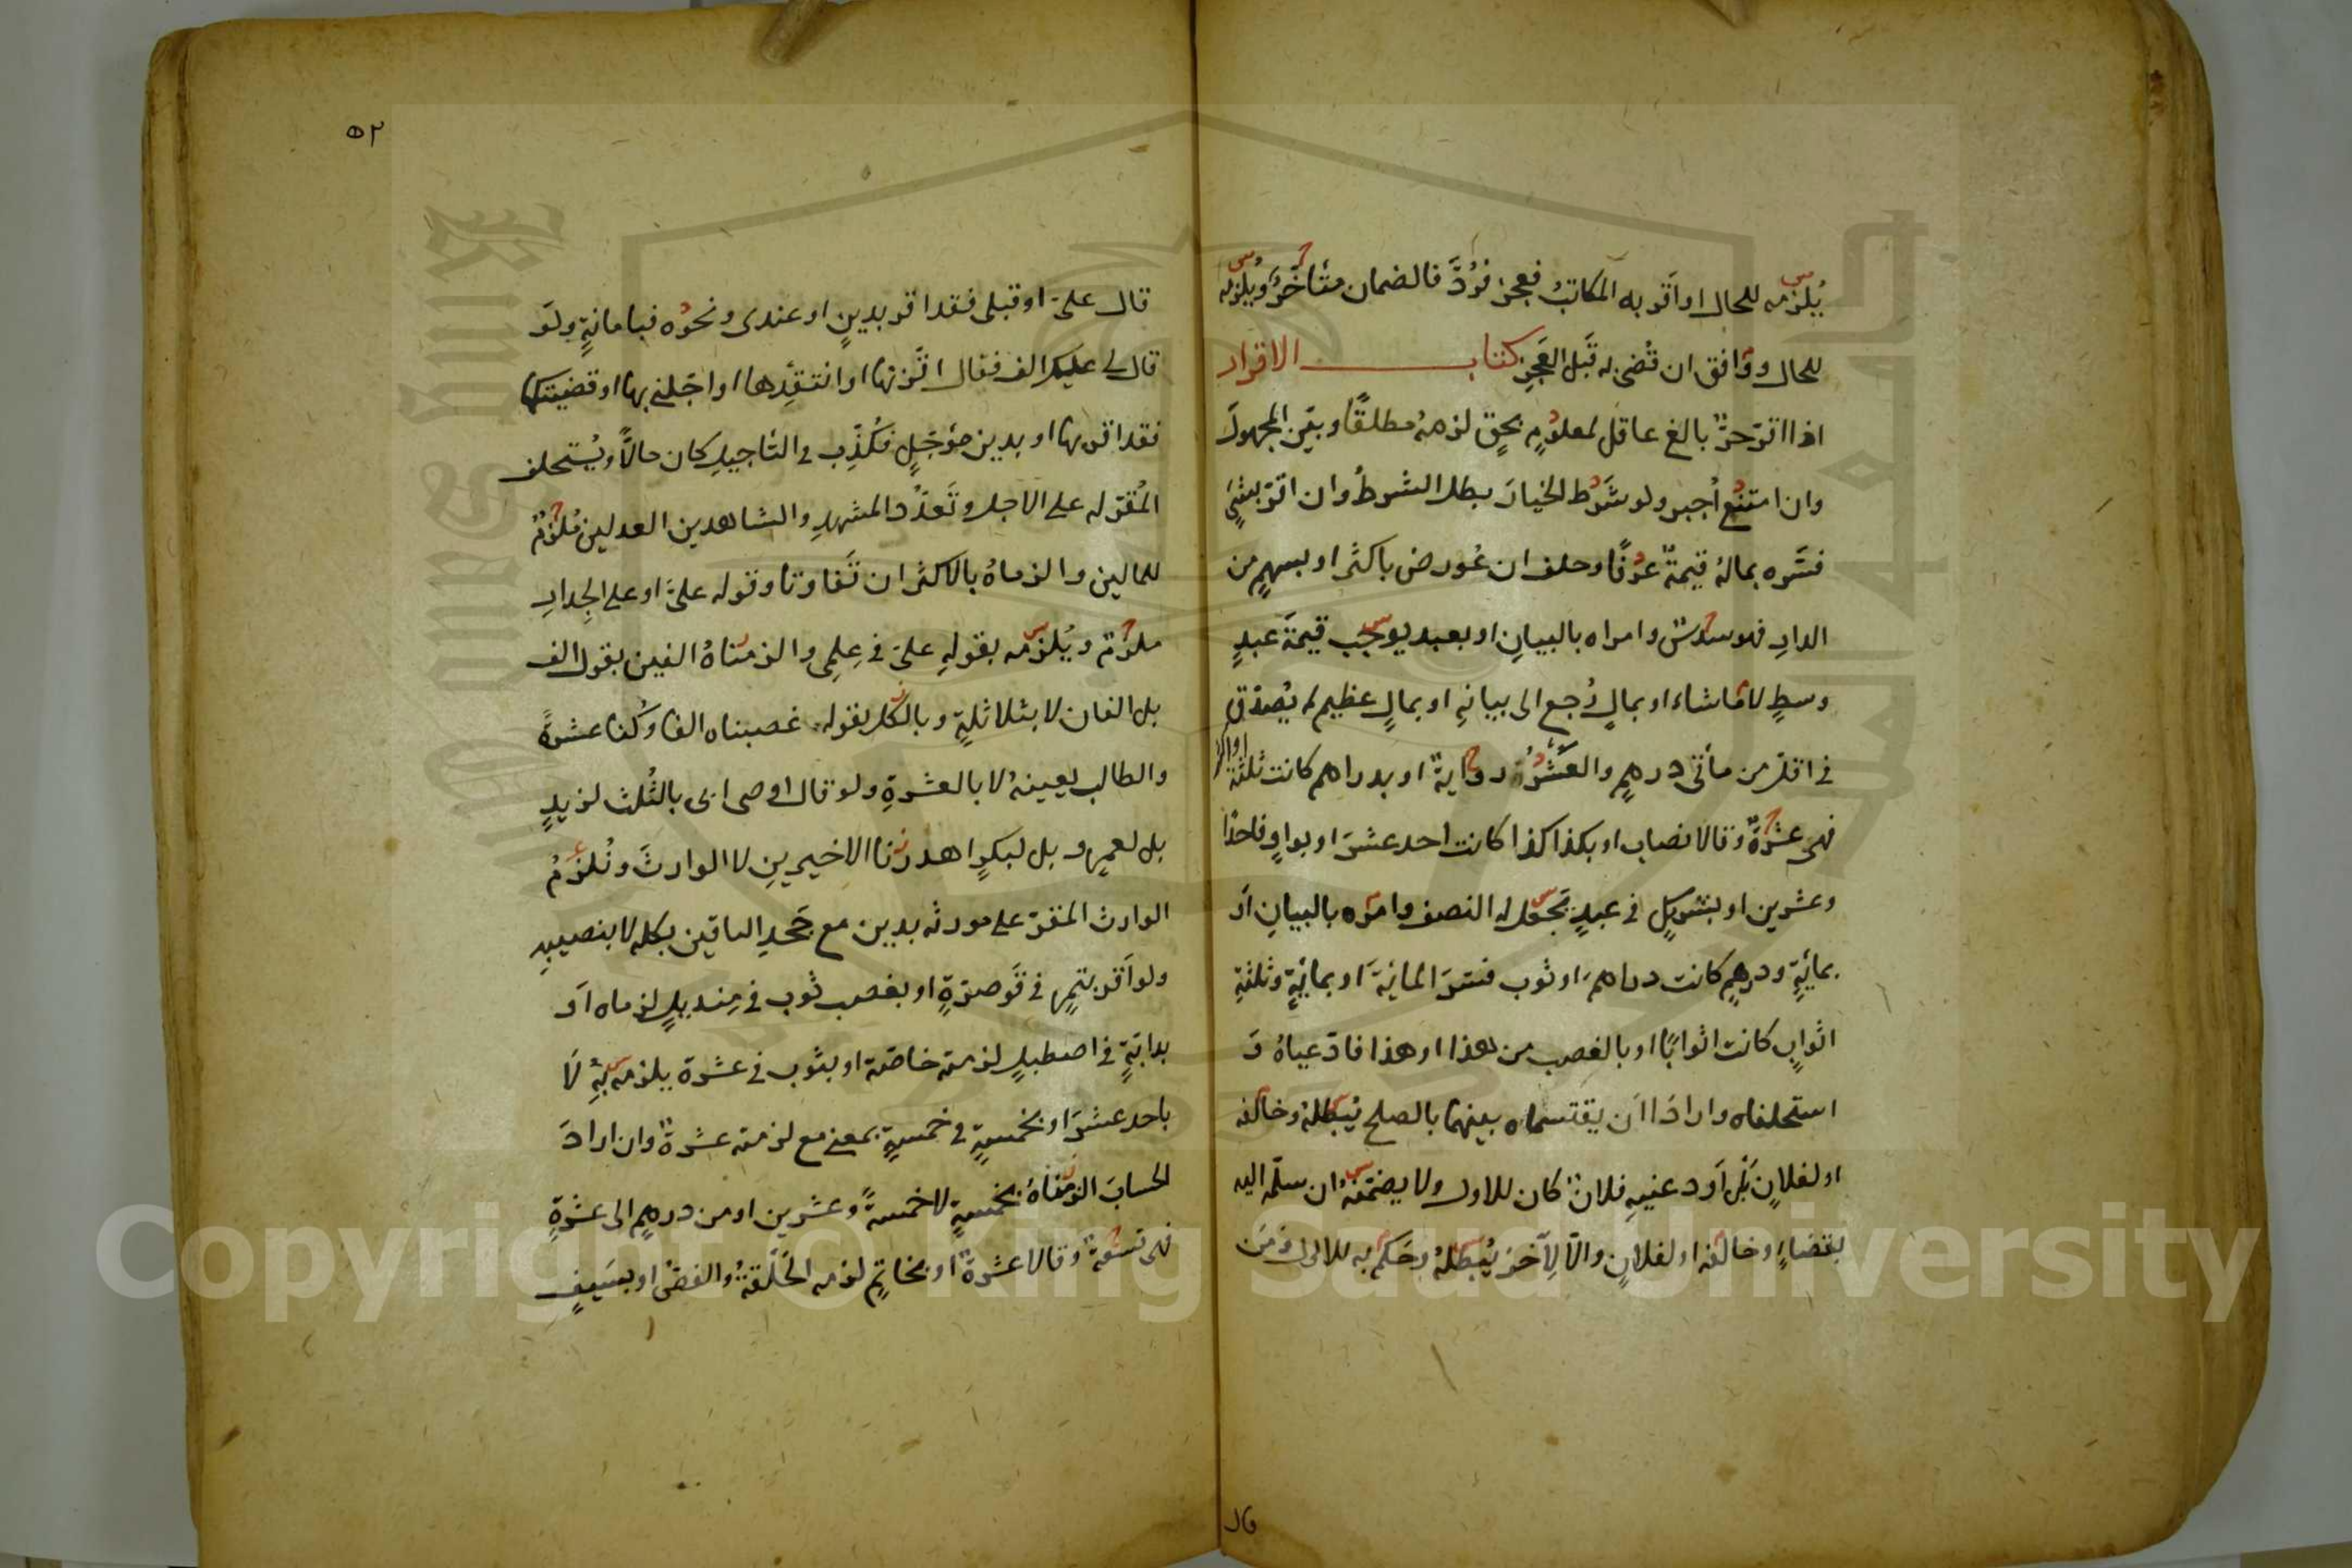 يُلزمه للحال او اَقر به المكاتبُ فعجز فرُدَّ فالضمان متأخرٌ ويُلزمه
للحال ووافق ان قُضى به قَبل العَجزِ كتاب الاقرار
اذا اقرّ حرٌّ بالغ عاقل لمعلومٍ بحقٍ لزمهُ مطلقًا وبيّن المجهولَ
وان امتنع اُجبر ولو شَرَط الخيارَ بطل الشرطُ وان اقرّ بشئٍ
فسّره بمالهُ قيمةٌ عرفًا وحلف ان عُورض باكثر او بسهمٍ من
الدارِ فهو سدسٌ وامراه بالبيانِ او بعبد يوجب قيمةَ عبدٍ
وسطٍ لا ما شاء او بمالٍ رُجع الى بيانهِ او بمالٍ عظيمٍ لم يُصدّق
فى اقلّ من مأتى درهمٍ والعَشَرةُ روايةٌ او بدراهم كانت ثلثة
فهى عشرةٌ وقالا نصاب او بكذا كذا كانت احد عشرَ او بواوٍ فاحدًا
وعشرين او بشركٍ فى عبدٍ يجعل له النصف وامره بالبيانِ اَو
بمائةٍ ودرهمٍ كانت دراهمَ او ثوب فسّرَ المائةَ او بمائةٍ وثلثةِ
اثوابٍ كانت اثوابًا او بالغصب من هذا او هذا فادّعياهُ وَ
استحلفاه وارادَا اَن يقتسماه بينهما بالصلح يُبطله وخالفه
او لفلانٍ بل اَودعنيهِ فلانٌ كان للاول ولا يضمّنهُ ان سلّمه اليه
بقضاءٍ وخالفه او لفلانٍ والّا لِآخر يُبطلهُ وحَكم به للاول ومَن
قال
٥٢
قال علىّ او قبلى فقد اقر بدينٍ او عندى ونحوُه فبامانةٍ ولَو
قال لى عليك الف فقال اتّزنها او انتقِدها او اجّلنى بها او قضيتكها
فقد اقر بها او بدين مؤجّلٍ فكُذِّب فى التأجيلِ كان حالًّا ويُستحلف
المُقرّ له على الاجل وتَعدُّد المشهدِ والشاهدين العدلين مُلزمٌ
للمالين والزماهُ بالاكثر ان تَفاوتا وقوله علىَّ او على الجِدارِ
ملزمٌ ويُلزمه بقولهِ علىّ فى عِلمى والزمناهُ الفين بقول الف
بل الفان لا بثلاثةٍ وبالكل بقوله غصبناه الفا وكُنا عشرةً
والطالب يعينهُ لا بالعشرةِ ولو قال اوصى ابى بالثُلث لزيدٍ
بل لعمرٍو بل لبكرٍ اهدرنا الاخيرينِ لا الوارثَ ونُلزمُ
الوارث المقرّ على مورثه بدين مع جَحدِ الباقين بكله لا بنصيبهِ
ولو اَقر بتمرٍ فى قَوصرّةٍ او بغصب ثوب فى مِنديلٍ لزماه اَو
بدابّةٍ فى اصطبلٍ لزمته خاصّة او بثوب فى عشرة يلزمه بهِ لَا
باحد عشرَ او بخمسةٍ فى خمسةٍ بمعنى مع لزمته عشرةٌ وان ارادَ
الحسابَ الزمناهُ بخمسةٍ لا خمسةً وعشرين او من درهمٍ الى عشرةٍ
فهى تسعةٌ وقالا عشرةٌ او بخاتمٍ لزمه الحَلَقةُ والفصُّ او بسَيفٍ
Copyright © King Saud University